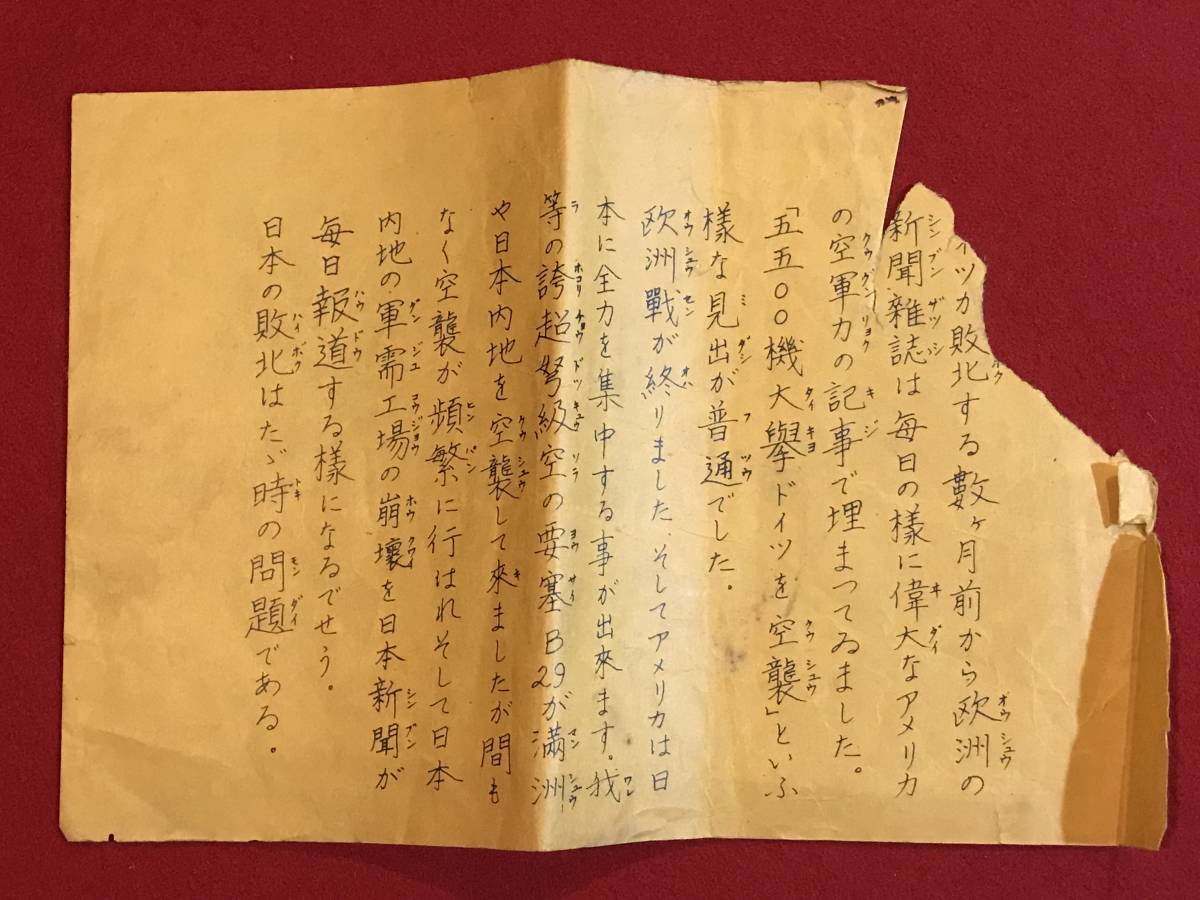 イツカ敗北する數ヶ月前から欧洲の
新聞雑誌は毎日の樣に偉大なアメリカ
の空軍力の記事で埋まつてゐました。
「五五〇〇機大擧ドイツを空襲」といふ
樣な見出が普通でした。
欧洲戰が終りました そしてアメリカは日
本に全力を集中する事が出來ます。我
等の誇超弩級空の要塞B29が満洲
や日本内地を空襲して來ましたが間も
なく空襲が頻繁に行はれそして日本
内地の軍需工場の崩壞を日本新聞が
毎日報道する樣になるでせう。
日本の敗北はたゞ時の問題である。